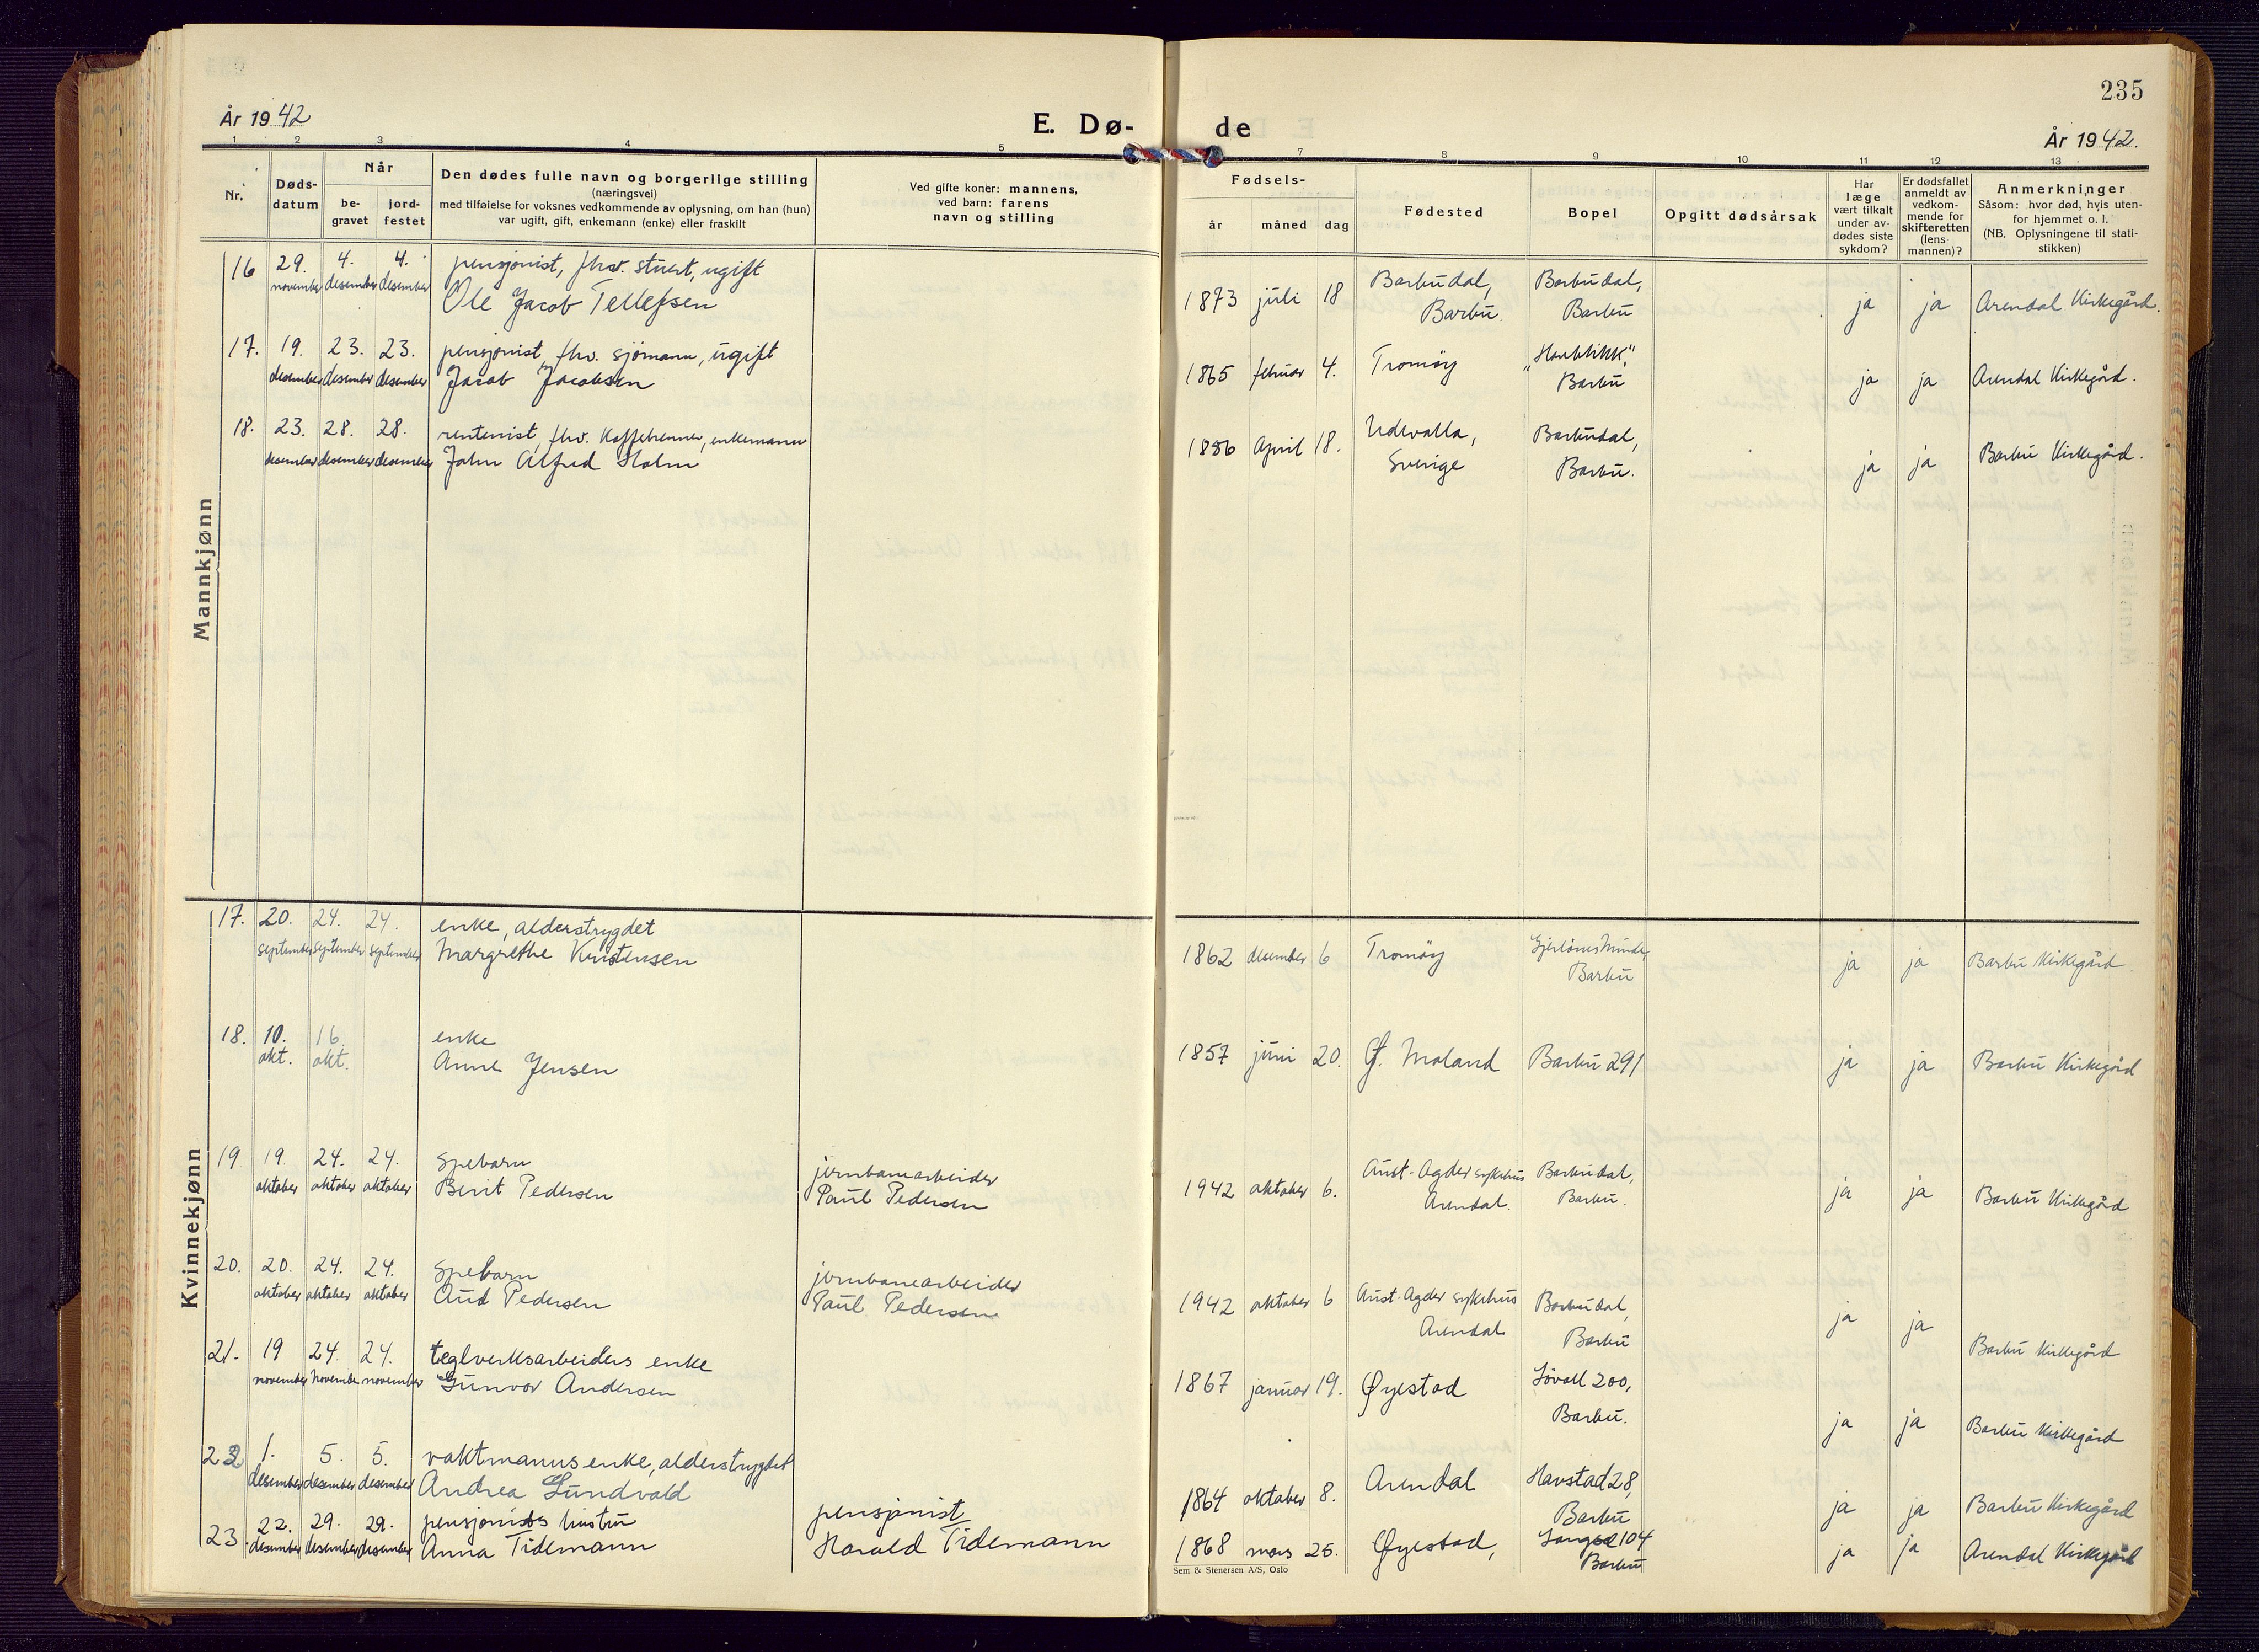 235
År 1942
E. Dø-
de
År 1942.
1 2 3 4 5 7 8 9 10 11 12 13
Nr.
Døds-
datum
Når
be-
gravet
jord-
festet
Den dødes fulle navn og borgerlige stilling
(næringsvei)
med tilføielse for voksnes vedkommende av oplysning, om han (hun)
var ugift, gift, enkemann (enke) eller fraskilt
Ved gifte koner: mannens,
ved barn: farens
navn og stilling
Fødsels-
år måned dag
Fødested
Bopel
Opgitt dødsårsak
Har
læge
vært tilkalt
under av-
dødes siste
sykdom?
Er dødsfallet
anmeldt av
vedkom-
mende for
skifteretten
(lens-
mannen)?
Anmerkninger
Såsom: hvor død, hvis uten-
for hjemmet o. l.
(NB. Oplysningene til stati-
stikken)
Mannkjønn
16 29. 4. 4. pensjonist, fhv. stuert, ugift
november desember desember Ole Jacob Tellefsen
1873 juli 18 Barbudal, Barbu. Barbudal, Barbu ja ja Arendal Kirkegård.
17. 19. 23. 23. pensjonist, fhv. sjömann, ugift
desember desember desember Jacob Jacobsen
1865 februar 4. Tromöy "Havblikk", Barbu ja ja Arendal Kirkegård.
18. 23. 28. 28. rentenist, fhv. Kaffebrenner, enkemann
desember desember desember John Alfred Holm
1856 April 18. Udevalla, Sverige Barbudal, Barbu. ja ja Barbu Kirkegård.
Kvinnekjønn
17. 20. 24. 24. enke, alderstrygdet
september september september Margrethe Kristensen
1862 desember 6 Tromöy Barbu ja ja Barbu Kirkegård
18. 10. 16. enke
okt. okt. Anne Jensen
1857 juni 20. Ø. Moland Barbu 291 ja ja Barbu Kirkegård
19 19. 24. 24. Spebarn jernbanearbeider
oktober oktober oktober Berit Pedersen Paul Pedersen
1942 oktober 6. Aust-Agder sykehus Arendal. Barbudal, Barbu. ja ja Barbu Kirkegård
20. 20. 24. 24. Spebarn jernbanearbeider
oktober oktober oktober Aud Pedersen Paul Pedersen
1942 oktober 6 Aust-Agder sykehus Arendal Barbudal, Barbu ja ja Barbu Kirkegård
21. 19 24. 24. teglverksarbeiders enke
november november november Gunvor Andersen
1867 januar 19. Øyestad 200, Barbu. ja ja Barbu Kirkegård
22 1. 5. 5. vaktmanns enke, alderstrygdet
desember desember desember Andrea Lundvald
1864 oktober 8. Arendal Havstad 28, Barbu ja ja Barbu Kirkegård
23. 22. 29. 29. pensjonists hustru pensjonist
desember desember desember Anna Tidemann Harald Tidemann
1868 mars 25. Øyestad, Langsæ 104 Barbu ja ja Arendal Kirkegård
Sem & Stenersen A/S, Oslo